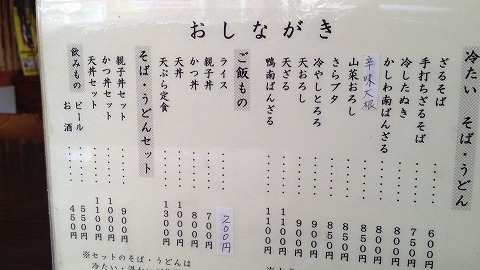 おしながき
冷たい そば・うどん
ざるそば ‥‥‥ 600円
手打ちざるそば ‥‥‥ 750円
冷したぬき
かしわ南ばんざる
辛味大根
山菜おろし
さらブタ
冷やしとろろ
天おろし
天ざる ‥‥‥ 1100円
鴨南ばんざる ‥‥‥ 1100円
ご飯もの
ライス ‥‥‥ 200円
親子丼 ‥‥‥ 700円
かつ丼 ‥‥‥ 800円
天丼 ‥‥‥ 1000円
天ぷら定食 ‥‥‥ 1300円
そば・うどんセット
親子丼セット ‥‥‥ 900円
かつ丼セット ‥‥‥ 1000円
天丼セット ‥‥‥ 1100円
飲みもの
ビール ‥‥‥ 550円
お酒 ‥‥‥ 450円
※セットのそば・うどんは